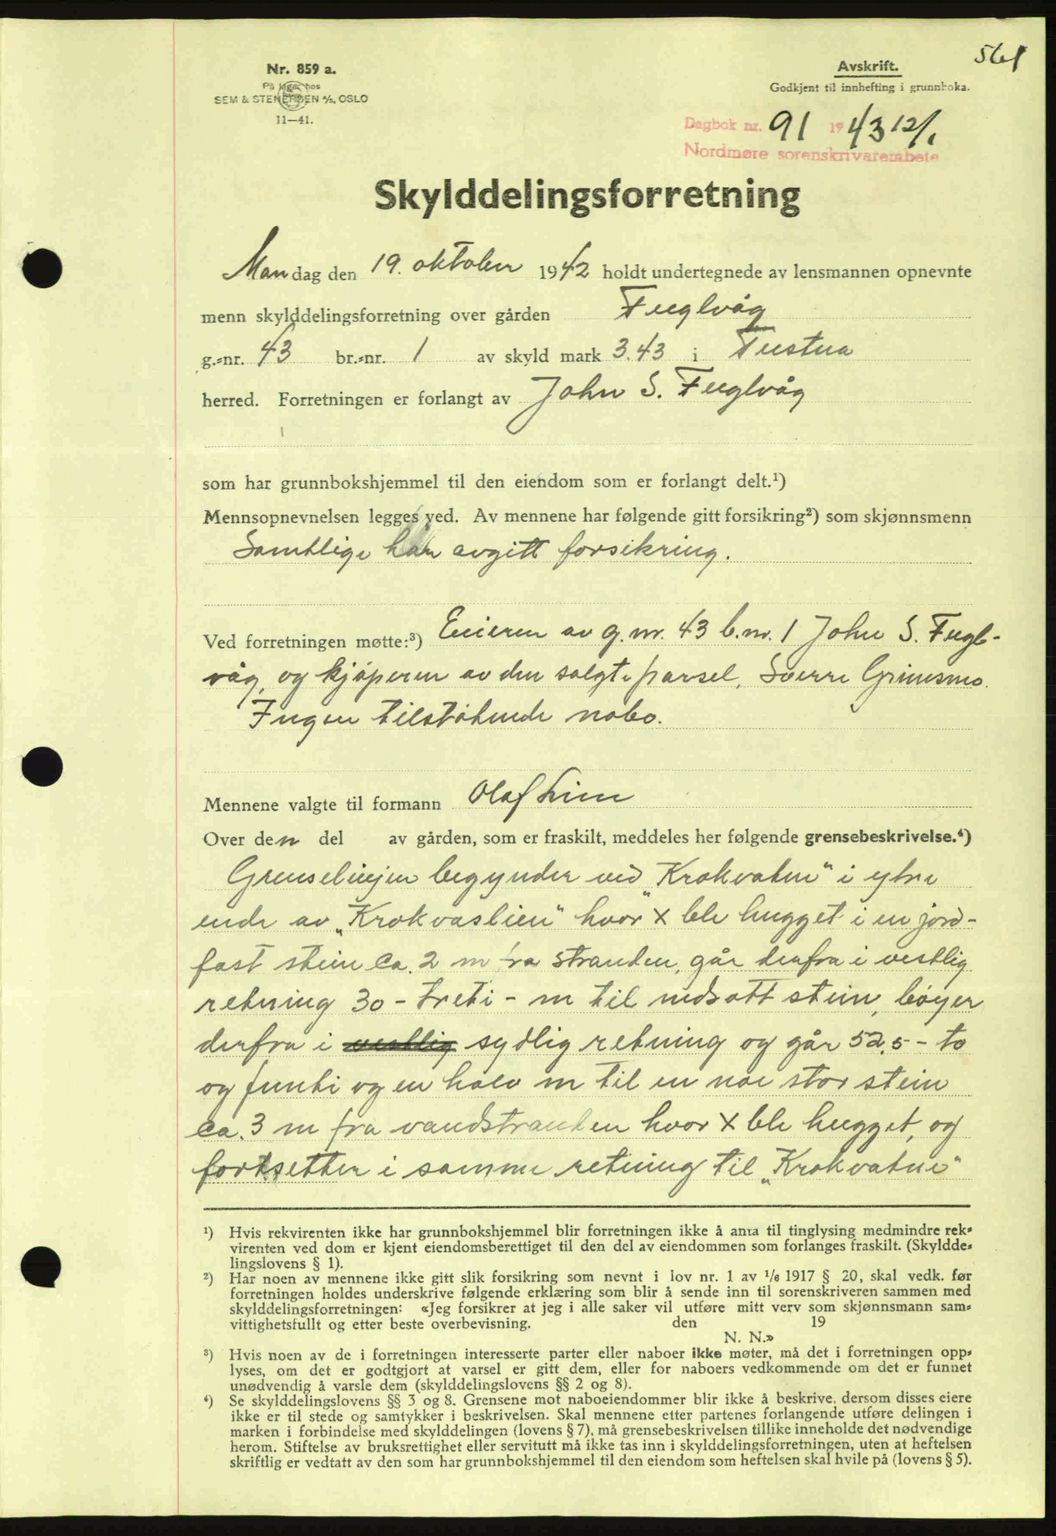 561
Nr. 859 a.
På lager hos
SEM & STENERSEN A/S, OSLO
11—41.
Avskrift.
Godkjent til innhefting i grunnboka.
Dagbok nr. 91 1943 12/1
Nordmøre sorenskrivarembete
Skylddelingsforretning
Mandag den 19. oktober 1942 holdt undertegnede av lensmannen opnevnte
menn skylddelingsforretning over gården Fuglvåg
g.-nr. 43 br.-nr. 1 av skyld mark 3.43 i Tustna
herred. Forretningen er forlangt av John S. Fuglvåg
som har grunnbokshjemmel til den eiendom som er forlangt delt.¹)
Mennsopnevnelsen legges ved. Av mennene har følgende gitt forsikring²) som skjønnsmenn
Samtlige har avgitt forsikring.
Ved forretningen møtte:³) Eieren av g.nr. 43 b.nr. 1 John S. Fugl-
våg, og kjøperen av den solgte parsel, Sverre Grimsmo.
Ingen tilstøtende nabo.
Mennene valgte til formann Olaf Lien
Over den del av gården, som er fraskilt, meddeles her følgende grensebeskrivelse.⁴)
Grenselinjen begynder ved „Krokvatne" i ytre
ende av „Krokvaslien" hvor X ble hugget i en jord-
fast stein ca. 2 m fra stranden, går derfra i vestlig
retning 30 - treti - m til nedsatt stein, bøyer
derfra i vestlig sydlig retning og går 52,5 - to
og femti og en halv m til en noe stor stein
ca. 3 m fra vandstranden hvor X ble hugget, og
fortsetter i samme retning til „Krokvatne"
¹) Hvis rekvirenten ikke har grunnbokshjemmel blir forretningen ikke å anta til tinglysing medmindre rek-
virenten ved dom er kjent eiendomsberettiget til den del av eiendommen som forlanges fraskilt. (Skyldde-
lingslovens § 1).
²) Har noen av mennene ikke gitt slik forsikring som nevnt i lov nr. 1 av 1/6 1917 § 20, skal vedk. før
forretningen holdes underskrive følgende erklæring som blir å sende inn til sorenskriveren sammen med
skylddelingsforretningen: «Jeg forsikrer at jeg i alle saker vil utføre mitt verv som skjønnsmann sam-
vittighetsfullt og etter beste overbevisning. den 19
N. N.»
³) Hvis noen av de i forretningen interesserte parter eller naboer ikke møter, må det i forretningen opp-
lyses, om det er godtgjort at varsel er gitt dem, eller for naboers vedkommende om det er funnet
unødvendig å varsle dem (skylddelingslovens §§ 2 og 8).
⁴) Se skylddelingslovens §§ 3 og 8. Grensene mot naboeiendommer blir ikke å beskrive, dersom disses eiere
ikke er til stede og samtykker i beskrivelsen. Skal mennene etter partenes forlangende utføre delingen i
marken i forbindelse med skylddelingen (lovens § 7), må grensebeskrivelsen tillike inneholde det nødvendige
herom. Stiftelse av bruksrettighet eller servitutt må ikke tas inn i skylddelingsforretningen, uten at heftelsen
skriftlig er vedtatt av den som har grunnbokshjemmel til den eiendom som heftelsen skal hvile på (lovens § 5).